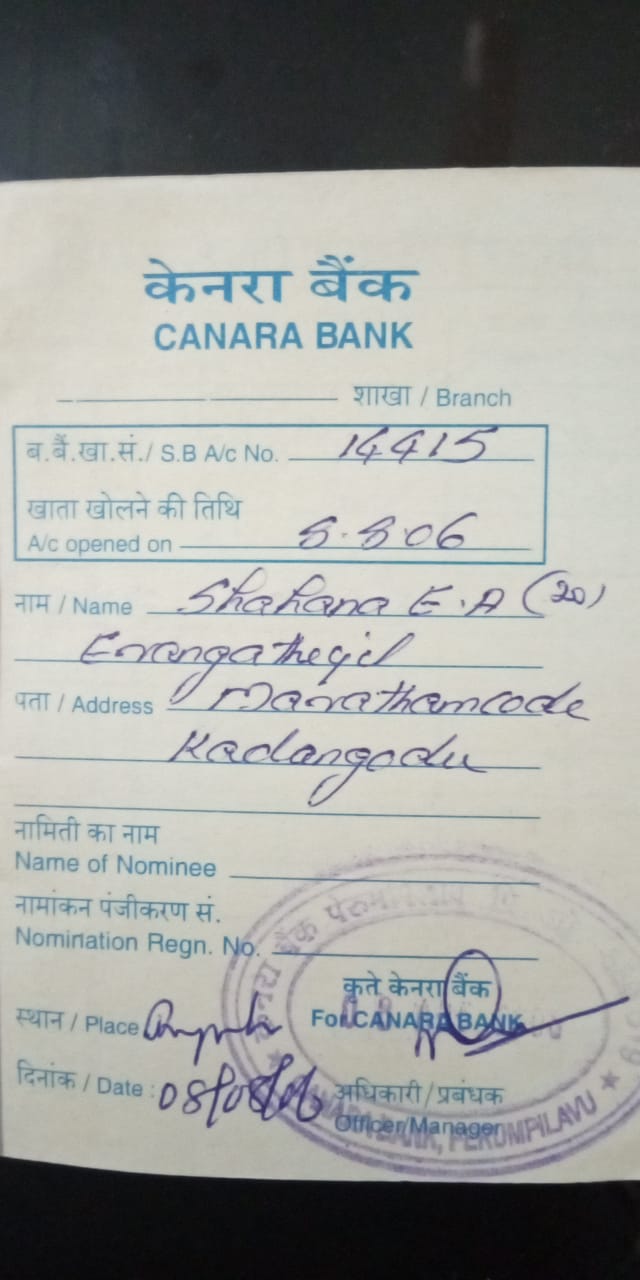 केनरा बैंक
CANARA BANK
शाखा / Branch
ब.बैं.खा.सं./ S.B A/c No. 14415
खाता खोलने की तिथि
A/c opened on 8.8.06
नाम / Name Shahana E.A (20)
पता / Address Marathamcode
Kadangodu
नामिती का नाम
Name of Nominee
नामांकन पंजीकरण सं.
Nomination Regn. No.
कृते केनरा बैंक
स्थान / Place For CANARA BANK
दिनांक / Date : 08/08/06 अधिकारी/प्रबंधक
Officer/Manager
CANARA BANK, PERUMPILAVU